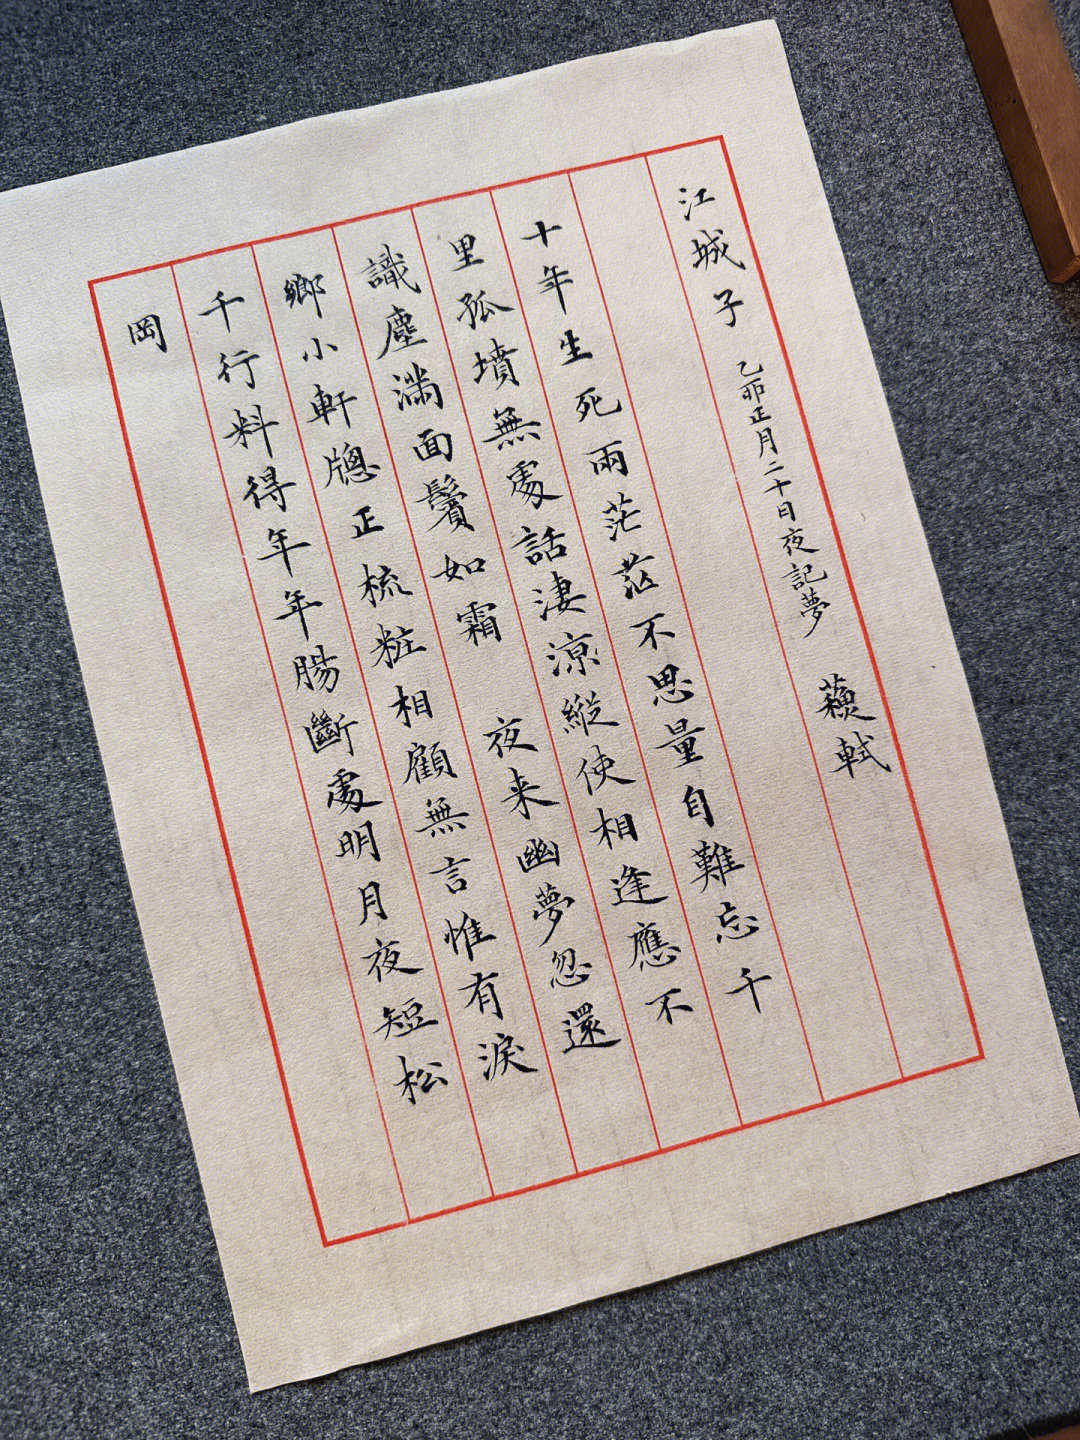 江城子 乙卯正月二十日夜記夢 蘓軾
十年生死兩茫茫不思量自難忘千
里孤墳無處話淒涼縱使相逢應不
識塵滿面鬢如霜 夜来幽夢忽還
鄉小軒牎正梳粧相顧無言惟有淚
千行料得年年腸斷處明月夜短松
岡